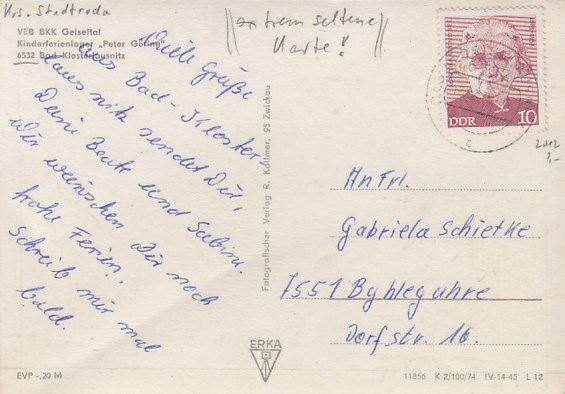 Krs. Stadtroda
VEB BKK Geiseltal
Kinderferienlager „Peter Göring"
6532 Bad Klosterlausnitz
extrem seltene
Karte!
Viele Grüße
aus Bad-Kloster=
lausnitz sendet Dir,
Deine Beate und Sabine.
Wir wünschen Dir noch
frohe Ferien!.
Schreib mir mal
bald.
Fotografischer Verlag R. Kallmer, 95 Zwickau
DDR 10
2012
An Frl.
Gabriela Schietke
7551 Byhleguhre
Dorfstr. 16.
ERKA
EVP -,20 M
11856 K 2/100/74 IV-14-45 L 12